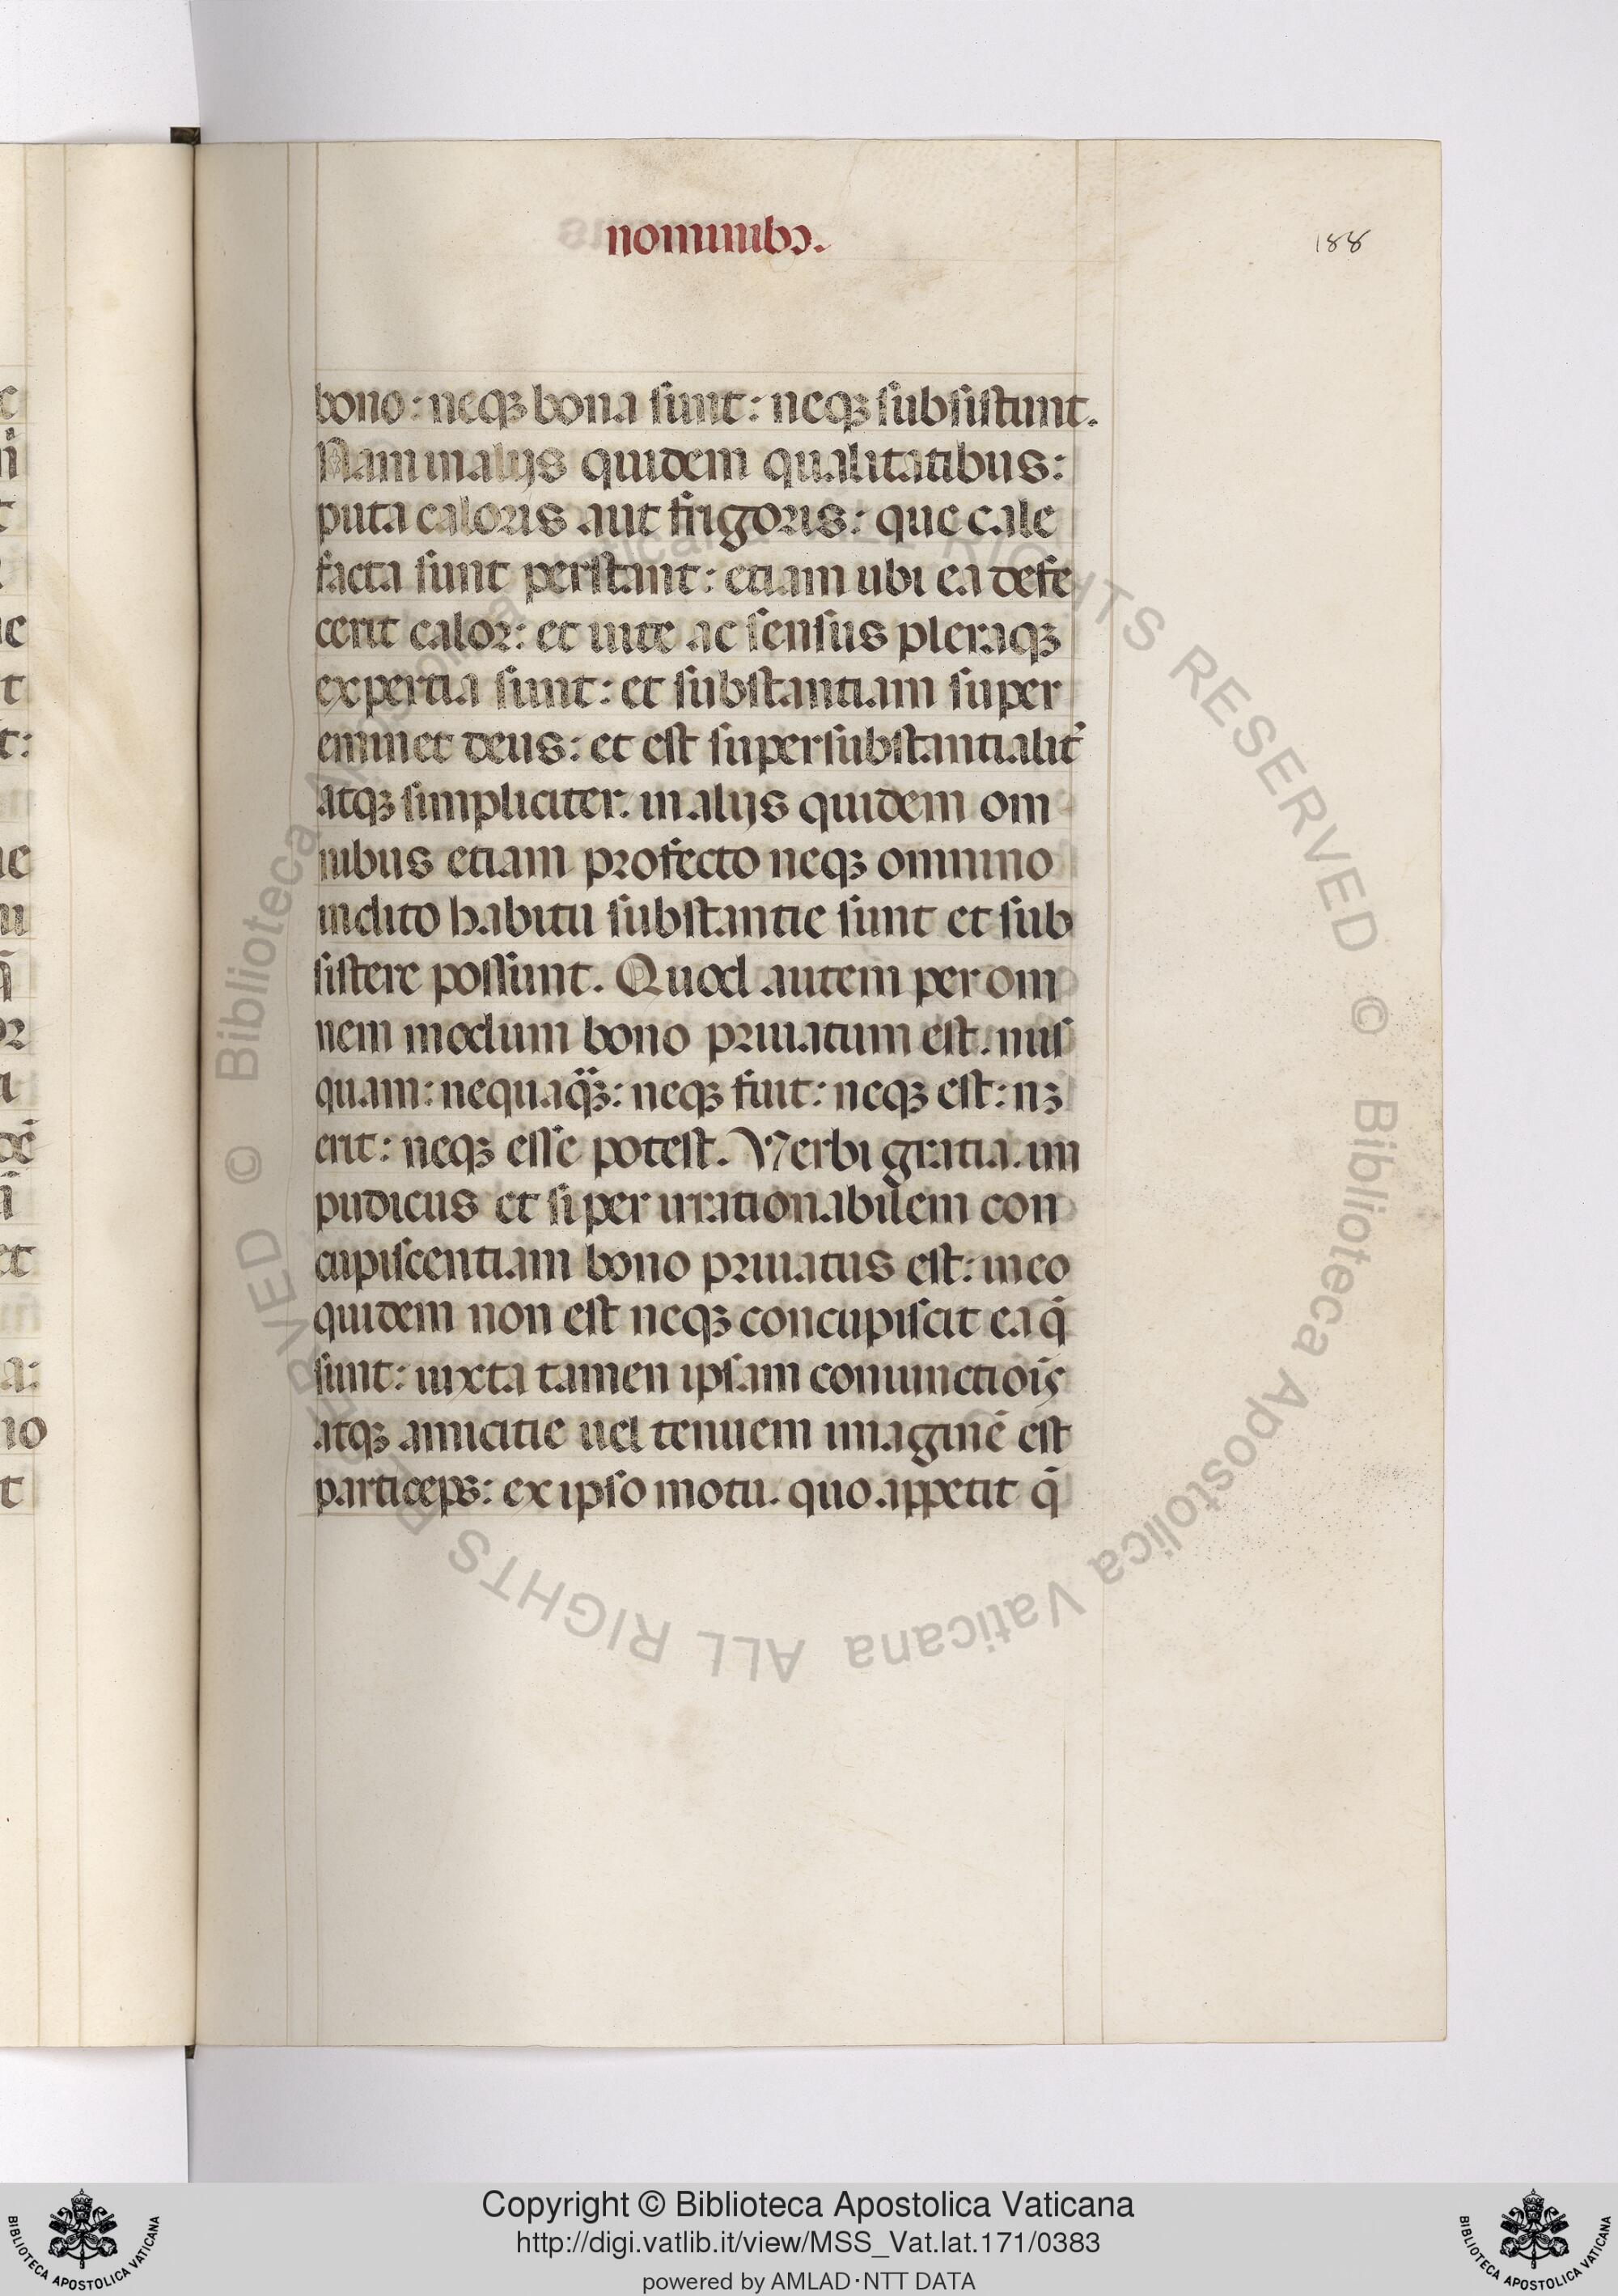 nominibꝫ.
188
bono: neqꝫ bona sunt: neqꝫ subsistunt.
Nam in alijs quidem qualitatibus:
puta caloris aut frigoris: que cale
facta sunt perstant: etiam ubi ea defe
cerit calor: et uite ac sensus pleraqꝫ
expertia sunt: et substantiam super
eminet deus: et est supersubstantialit᷑
atqꝫ simpliciter. in alijs quidem om
nibus etiam profecto neqꝫ omnino
indito habitu substantie sunt et sub
sistere possunt. Quod autem per om
nem modum bono priuatum est. nus
quam: nequaqꝫ: neqꝫ fuit: neqꝫ est: nꝫ
erit: neqꝫ esse potest. Verbi gratia. im
pudicus et si per irrationabilem con
cupiscentiam bono priuatus est: in eo
quidem non est neqꝫ concupiscit ea q̄
sunt: iuxta tamen ipsam coniunctiōis
atqꝫ amicitie uel tenuem imaginē est
particeps: ex ipso motu. quo appetit q̄
© Biblioteca Apostolica Vaticana ALL RIGHTS RESERVED © Biblioteca Apostolica Vaticana ALL RIGHTS RESERVED
Copyright © Biblioteca Apostolica Vaticana
http://digi.vatlib.it/view/MSS_Vat.lat.171/0383
powered by AMLAD·NTT DATA
BIBLIOTECA APOSTOLICA VATICANA
BIBLIOTECA APOSTOLICA VATICANA